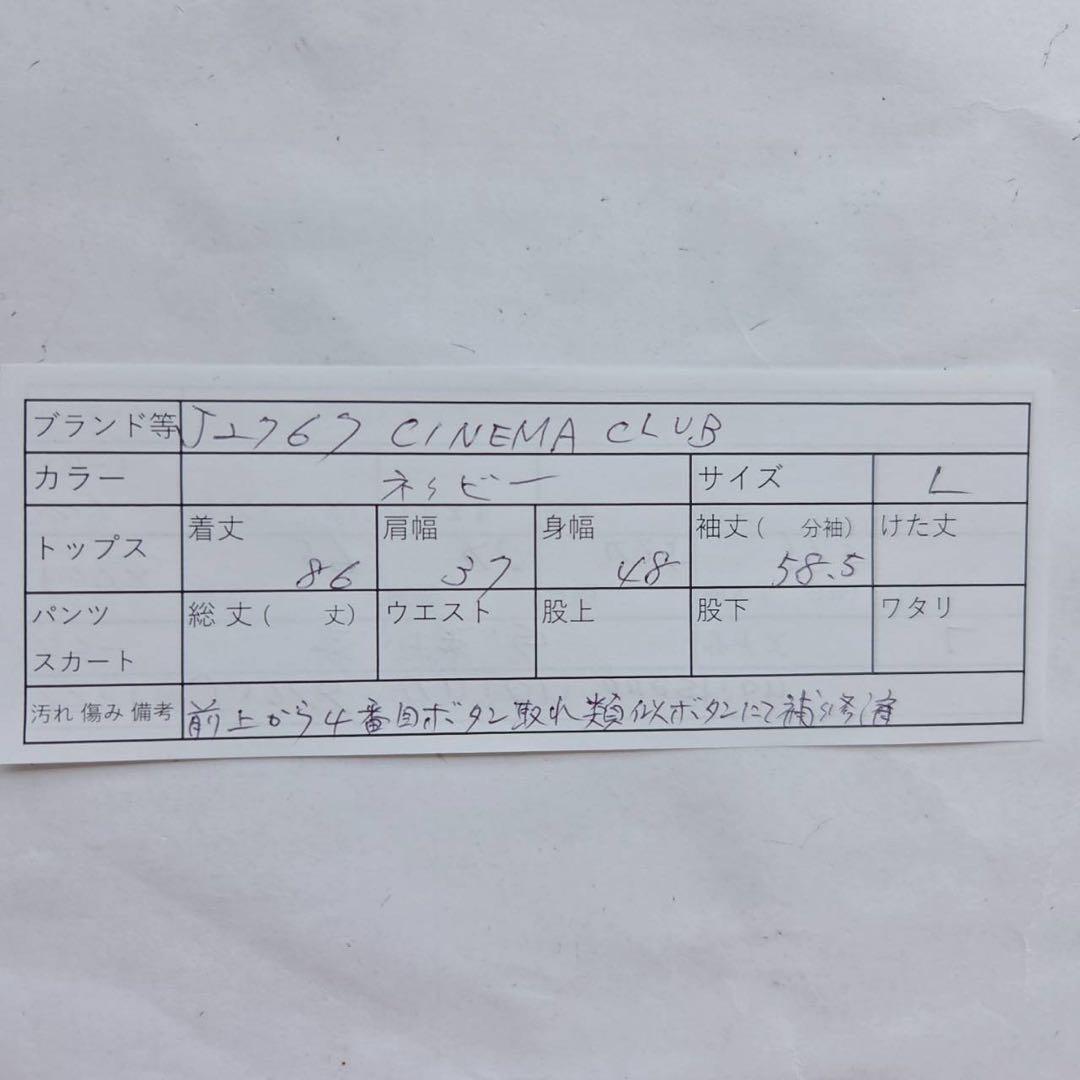 ブランド等 J2767 CINEMA CLUB
カラー ネイビー サイズ L
トップス 着丈 86 肩幅 37 身幅 48 袖丈( 分袖) 58.5 けた丈
パンツ スカート 総丈( 丈) ウエスト 股上 股下 ワタリ
汚れ 傷み 備考 前上から4番目ボタン取れ類似ボタンにて補修済